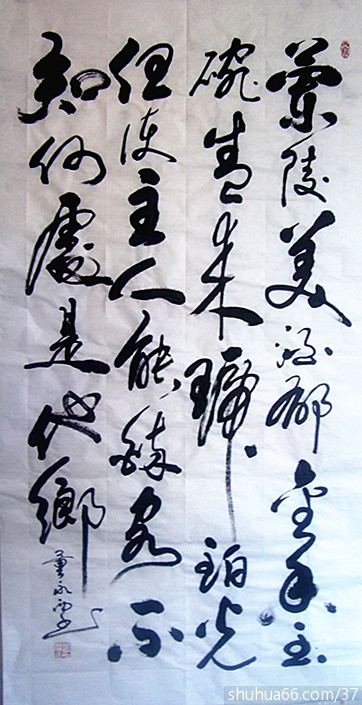 蘭陵美酒郁金香玉
碗盛来琥珀光
但使主人能醉客不
知何處是他鄉
董永
shuhua66.com/37